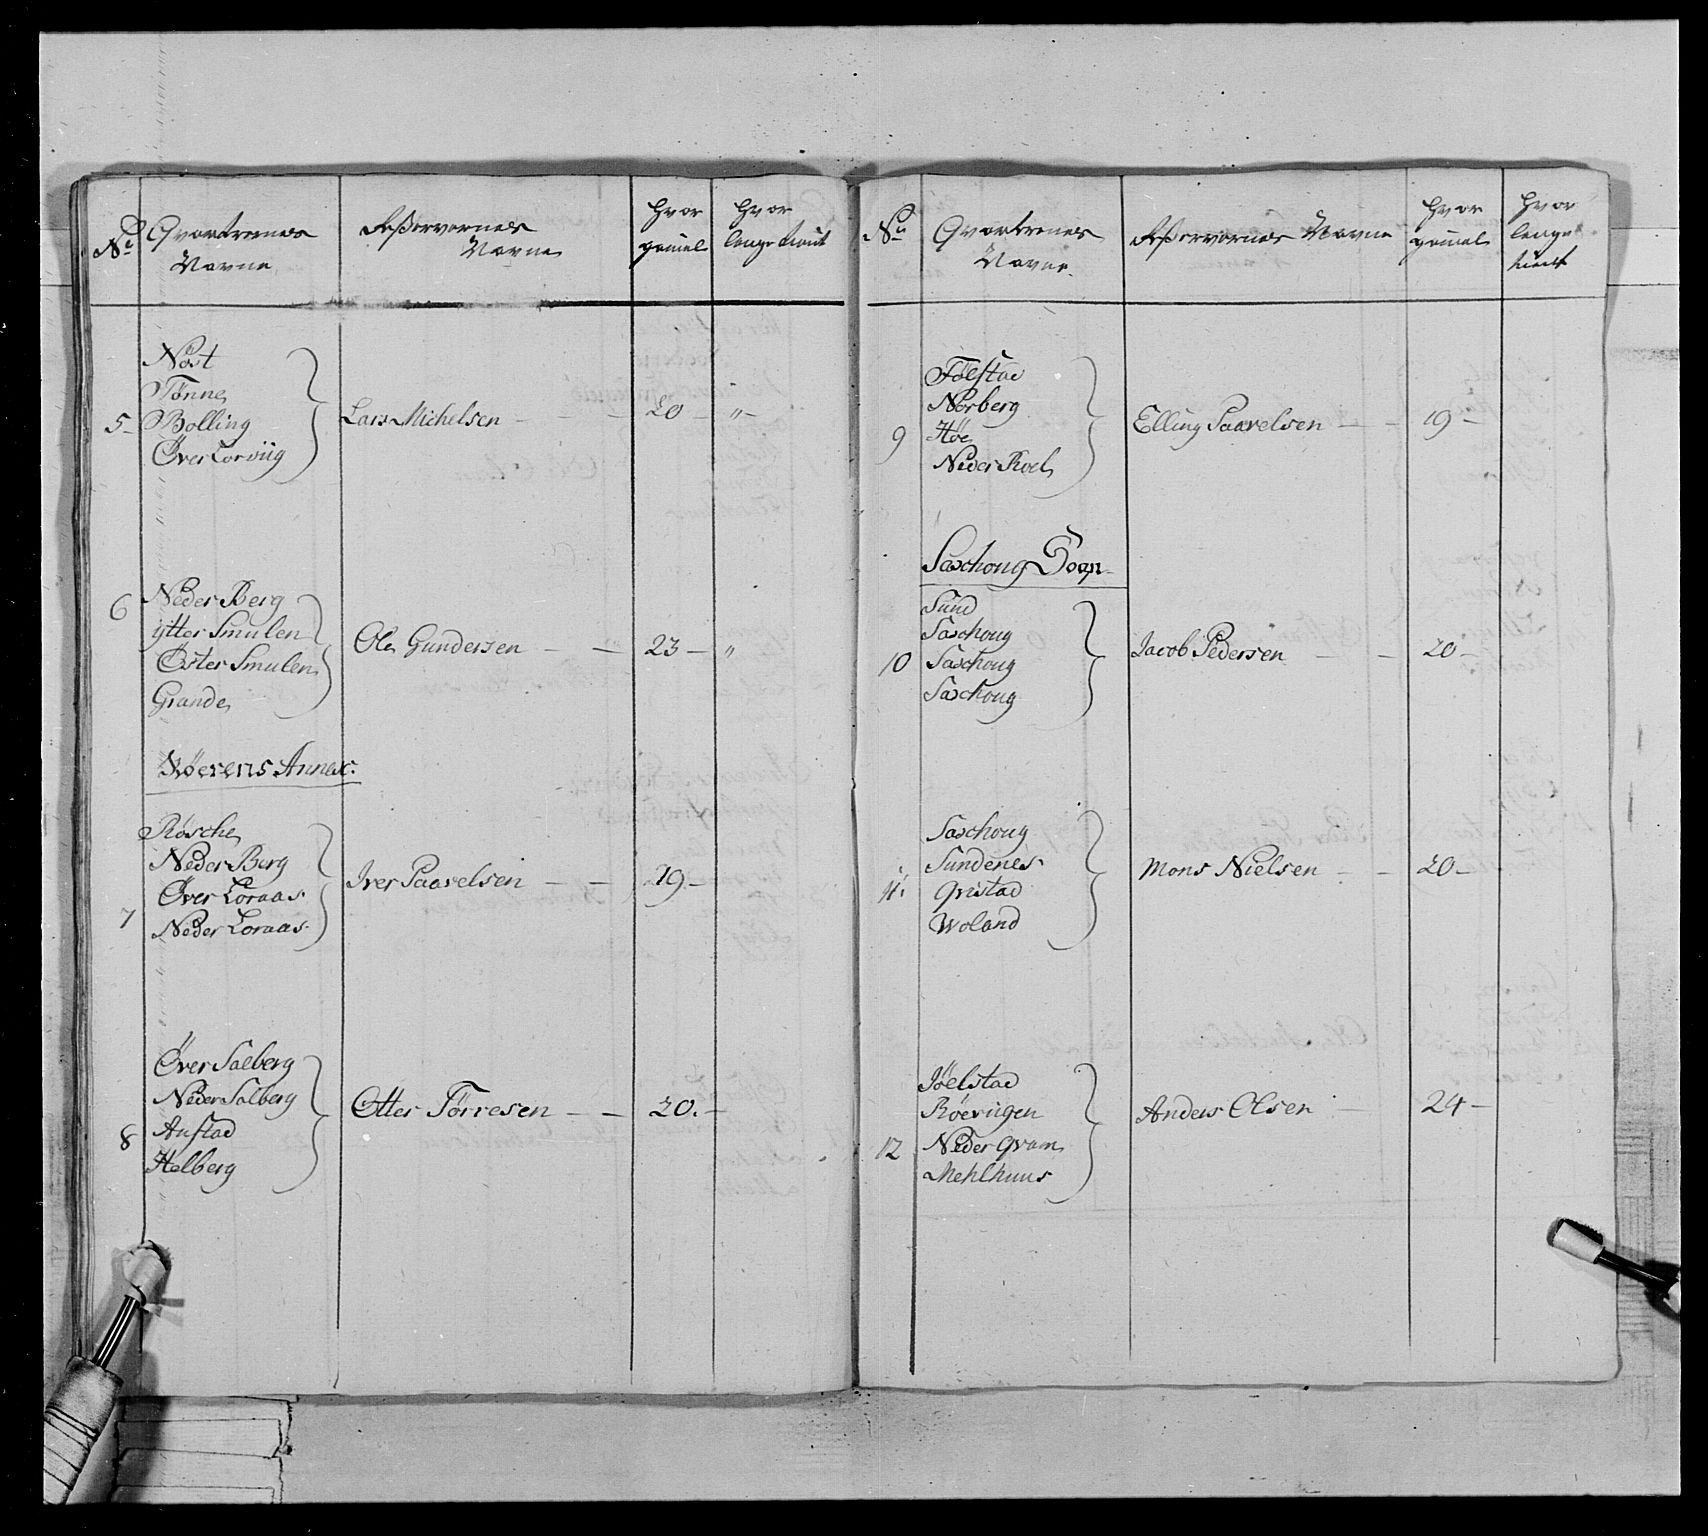 No
Qvarterenes
Navne
Reservernes
Navne
Hvor
gamel
Hvor
lenge tient
5
Nøst
Tønne
Bolling
Øver Lorviig
Lars Michelsen - - 20 - "
6
Neder Berg
ytter Smulen
Øster Smulen
Grande
Ole Gundersen - - 23 - "
Møerens Annex:
7
Røsche
Neder Berg
Øver Loraas
Neder Loraas
Iver Paavelsen - - 19 -
8
Øver Salberg
Neder Salberg
Austad
Helberg
Otter Tørresen - - 20. -
No
Qvarterenes
Navne
Reservernes Navne
Hvor
gamel
Hvor
lenge
tient
9
Følstad
Norberg
Høe
Neder Roel
Elling Paavelsen - - 19 -
Saxhoug Sogn
10
Sund
Saxhoug
Saxhoug
Saxhoug
Jacob Pedersen - - 20 -
11
Saxhoug
Sundenes
Qvistad
Woland
Mons Nielsen - - 20 -
12
Jøelstad
Røeviigen
Neder Qvam
Mehlhuus
Anders Olsen - 24 -